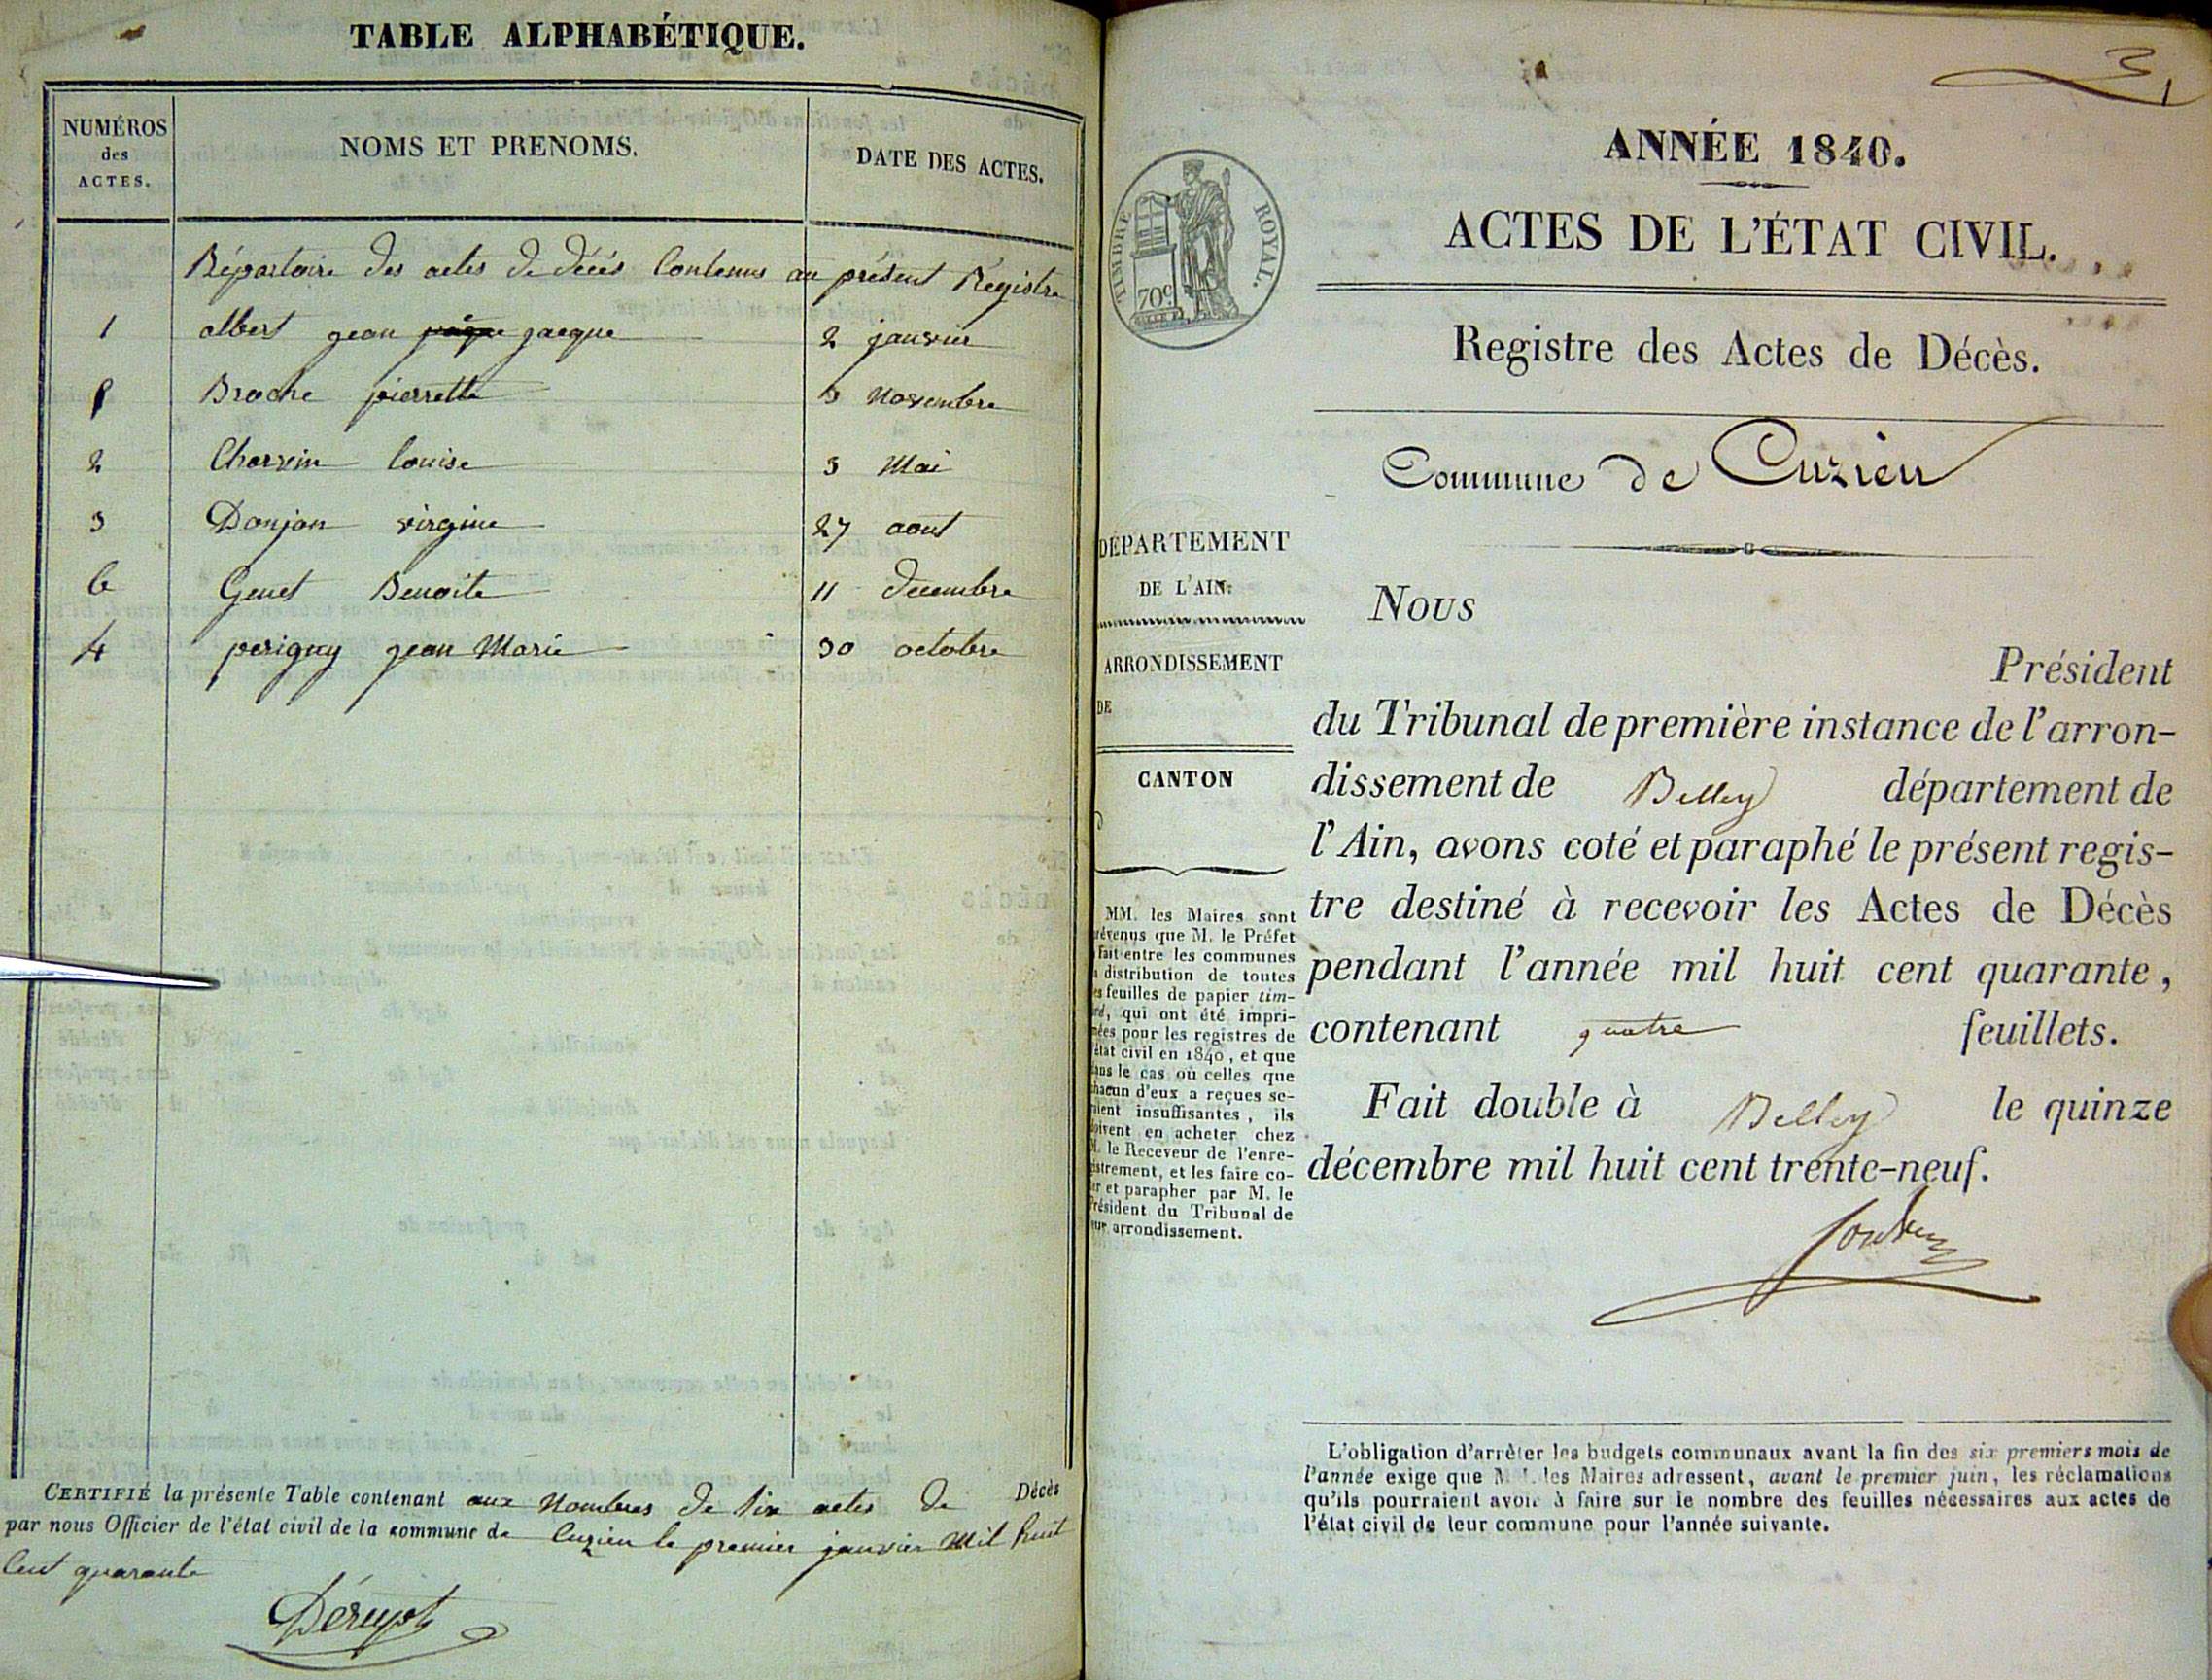 TABLE ALPHABÉTIQUE.
NUMÉROS des ACTES.
NOMS ET PRENOMS.
DATE DES ACTES.
Répertoire des actes de décès Contenus au présent Registre
1 albert jean jacque 2 janvier
Broche pierrette 3 Novembre
2 Charvin louise 3 Mai
3 Donjon virginie 27 aout
6 Genet Benoite 11 decembre
4 perigny jean Marie 30 octobre
CERTIFIÉ la présente Table contenant aux Nombres de six actes de Décès
par nous Officier de l'état civil de la commune de Cuzieu le premier janvier Mil huit
Cent quarante
ANNÉE 1840.
ACTES DE L'ÉTAT CIVIL.
TIMBRE ROYAL.
70c
Registre des Actes de Décès.
Commune de Cuzieu
DÉPARTEMENT
DE L'AIN.
ARRONDISSEMENT
DE
CANTON
MM. les Maires sont
prévenus que M. le Préfet
fait entre les communes
la distribution de toutes
les feuilles de papier tim-
bré, qui ont été impri-
mées pour les registres de
l'état civil en 1840, et que
dans le cas où celles que
chacun d'eux a reçues se-
raient insuffisantes, ils
doivent en acheter chez
M. le Receveur de l'enre-
gistrement, et les faire co-
ter et parapher par M. le
Président du Tribunal de
leur arrondissement.
Nous
Président
du Tribunal de première instance de l'arron-
dissement de Belley département de
l'Ain, avons coté et paraphé le présent regis-
tre destiné à recevoir les Actes de Décès
pendant l'année mil huit cent quarante,
contenant quatre feuillets.
Fait double à Belley le quinze
décembre mil huit cent trente-neuf.
L'obligation d'arrêter les budgets communaux avant la fin des six premiers mois de
l'année exige que MM. les Maires adressent, avant le premier juin, les réclamations
qu'ils pourraient avoir à faire sur le nombre des feuilles nécessaires aux actes de
l'état civil de leur commune pour l'année suivante.